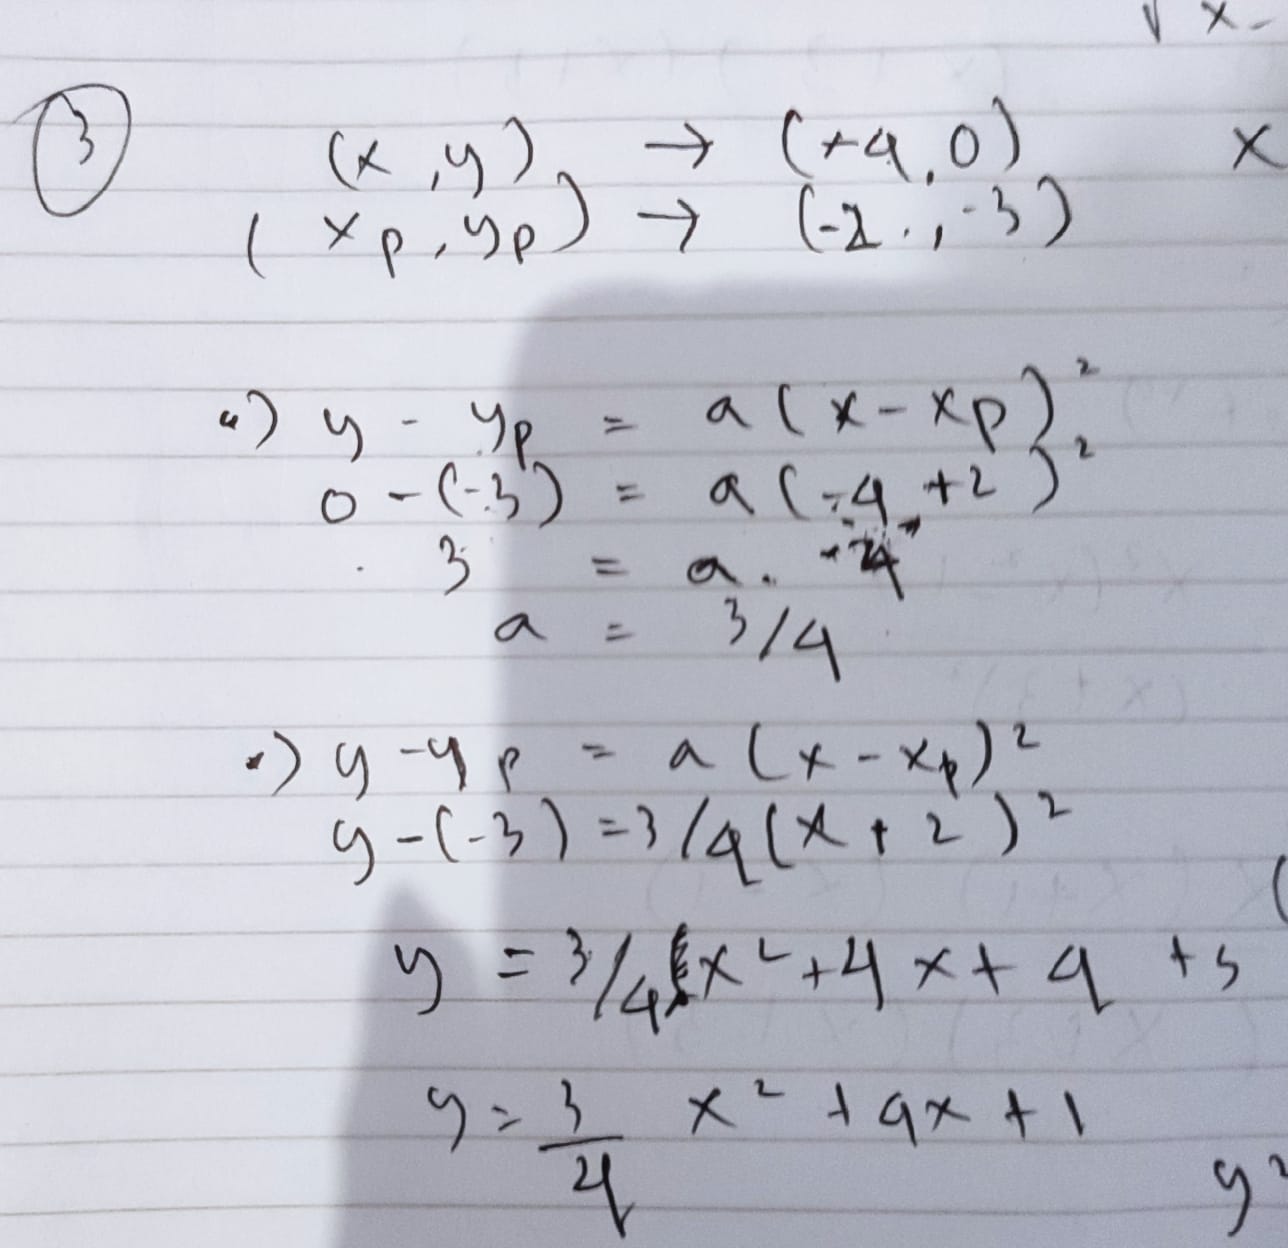 √ x -
3 (x, y) → (+4, 0) x
(xp, yp) → (-2, -3)
") y - yp = a(x - xp)²
0 - (-3) = a(-4 + 2)²
3 = a. 4
a = 3/4
•) y - yp = a(x - xp)²
y - (-3) = 3/4(x + 2)²
(
y = 3/4 x² + 4x + 4 + 3
y = 3/4 x² + 4x + 1
y =